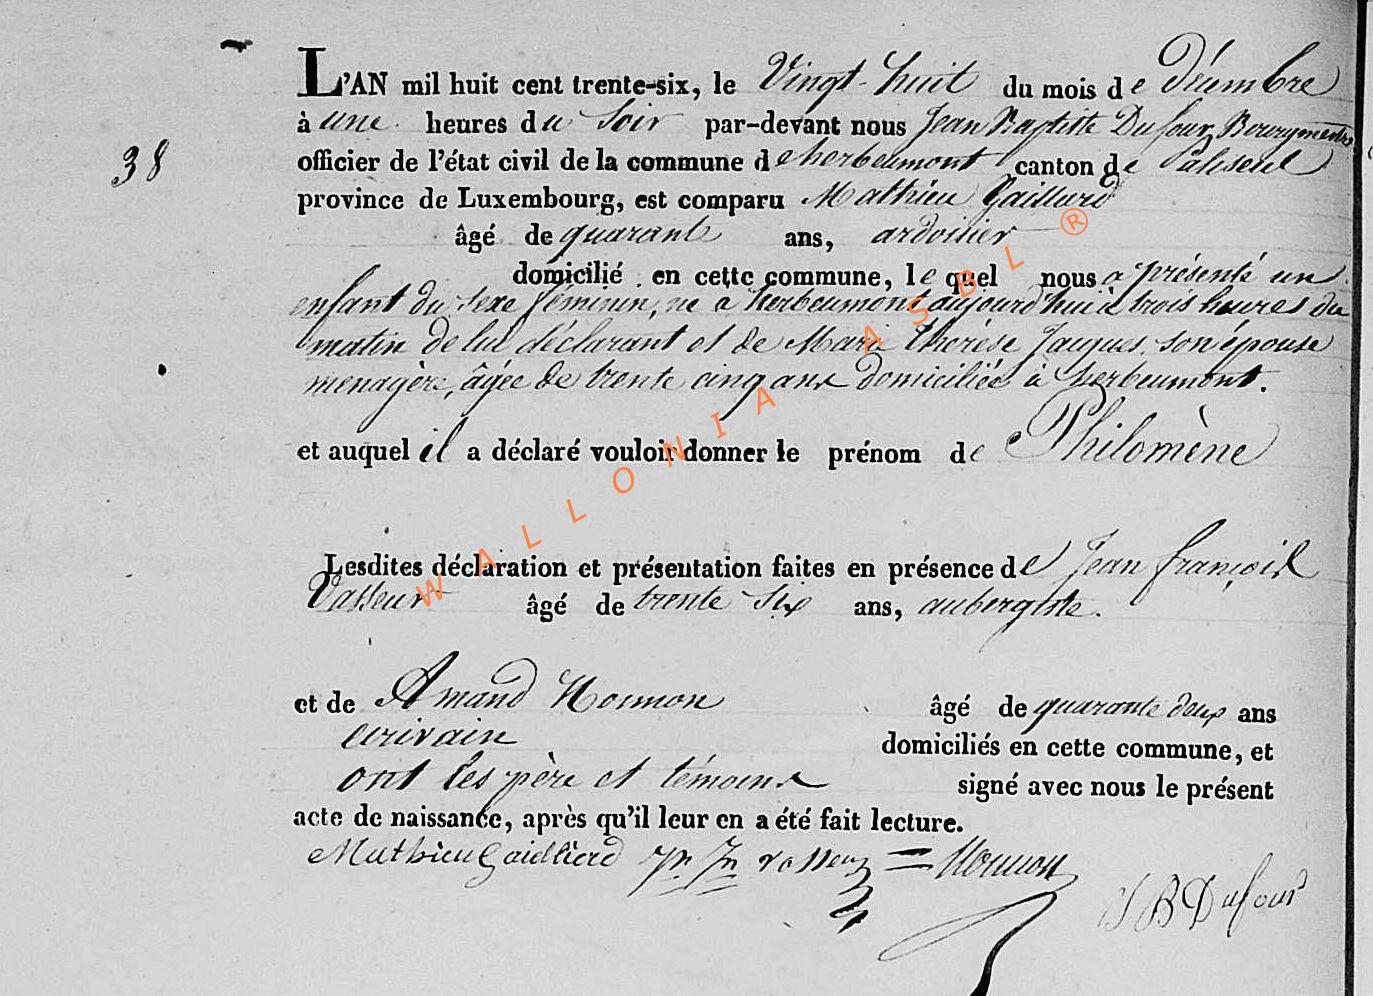 L'AN mil huit cent trente-six, le Vingt-huit du mois de Décembre
à une heures du Soir par-devant nous Jean Baptiste Dufour Bourgmestre
38
officier de l'état civil de la commune d'herbeumont canton de Paliseul
province de Luxembourg, est comparu Mathieu Gaillard
âgé de quarante ans, ardoisier
domicilié en cette commune, le quel nous a présenté un
enfant du sexe féminin, né a herbeumont aujourd'hui à trois heures du
matin de lui déclarant et de Marie thérèse Jaques son épouse
menagère, âgée de trente cinq ans domiciliée à herbeumont.
et auquel il a déclaré vouloir donner le prénom de Philomène
Lesdites déclaration et présentation faites en présence de Jean françois
Vasseur âgé de trente six ans, aubergiste.
et de Amand Noumon âgé de quarante deux ans
ecrivain domiciliés en cette commune, et
ont les père et témoins signé avec nous le présent
acte de naissance, après qu'il leur en a été fait lecture.
Mathieu Gaillierd Jn. Fn Vasseur Noumon
J B Dufour
WALLONIA ASBL ®